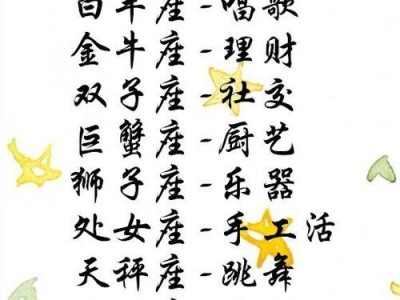 白羊座-唱歌
金牛座-理财
双子座-社交
巨蟹座-厨艺
狮子座-乐器
处女座-手工活
天秤座-跳舞